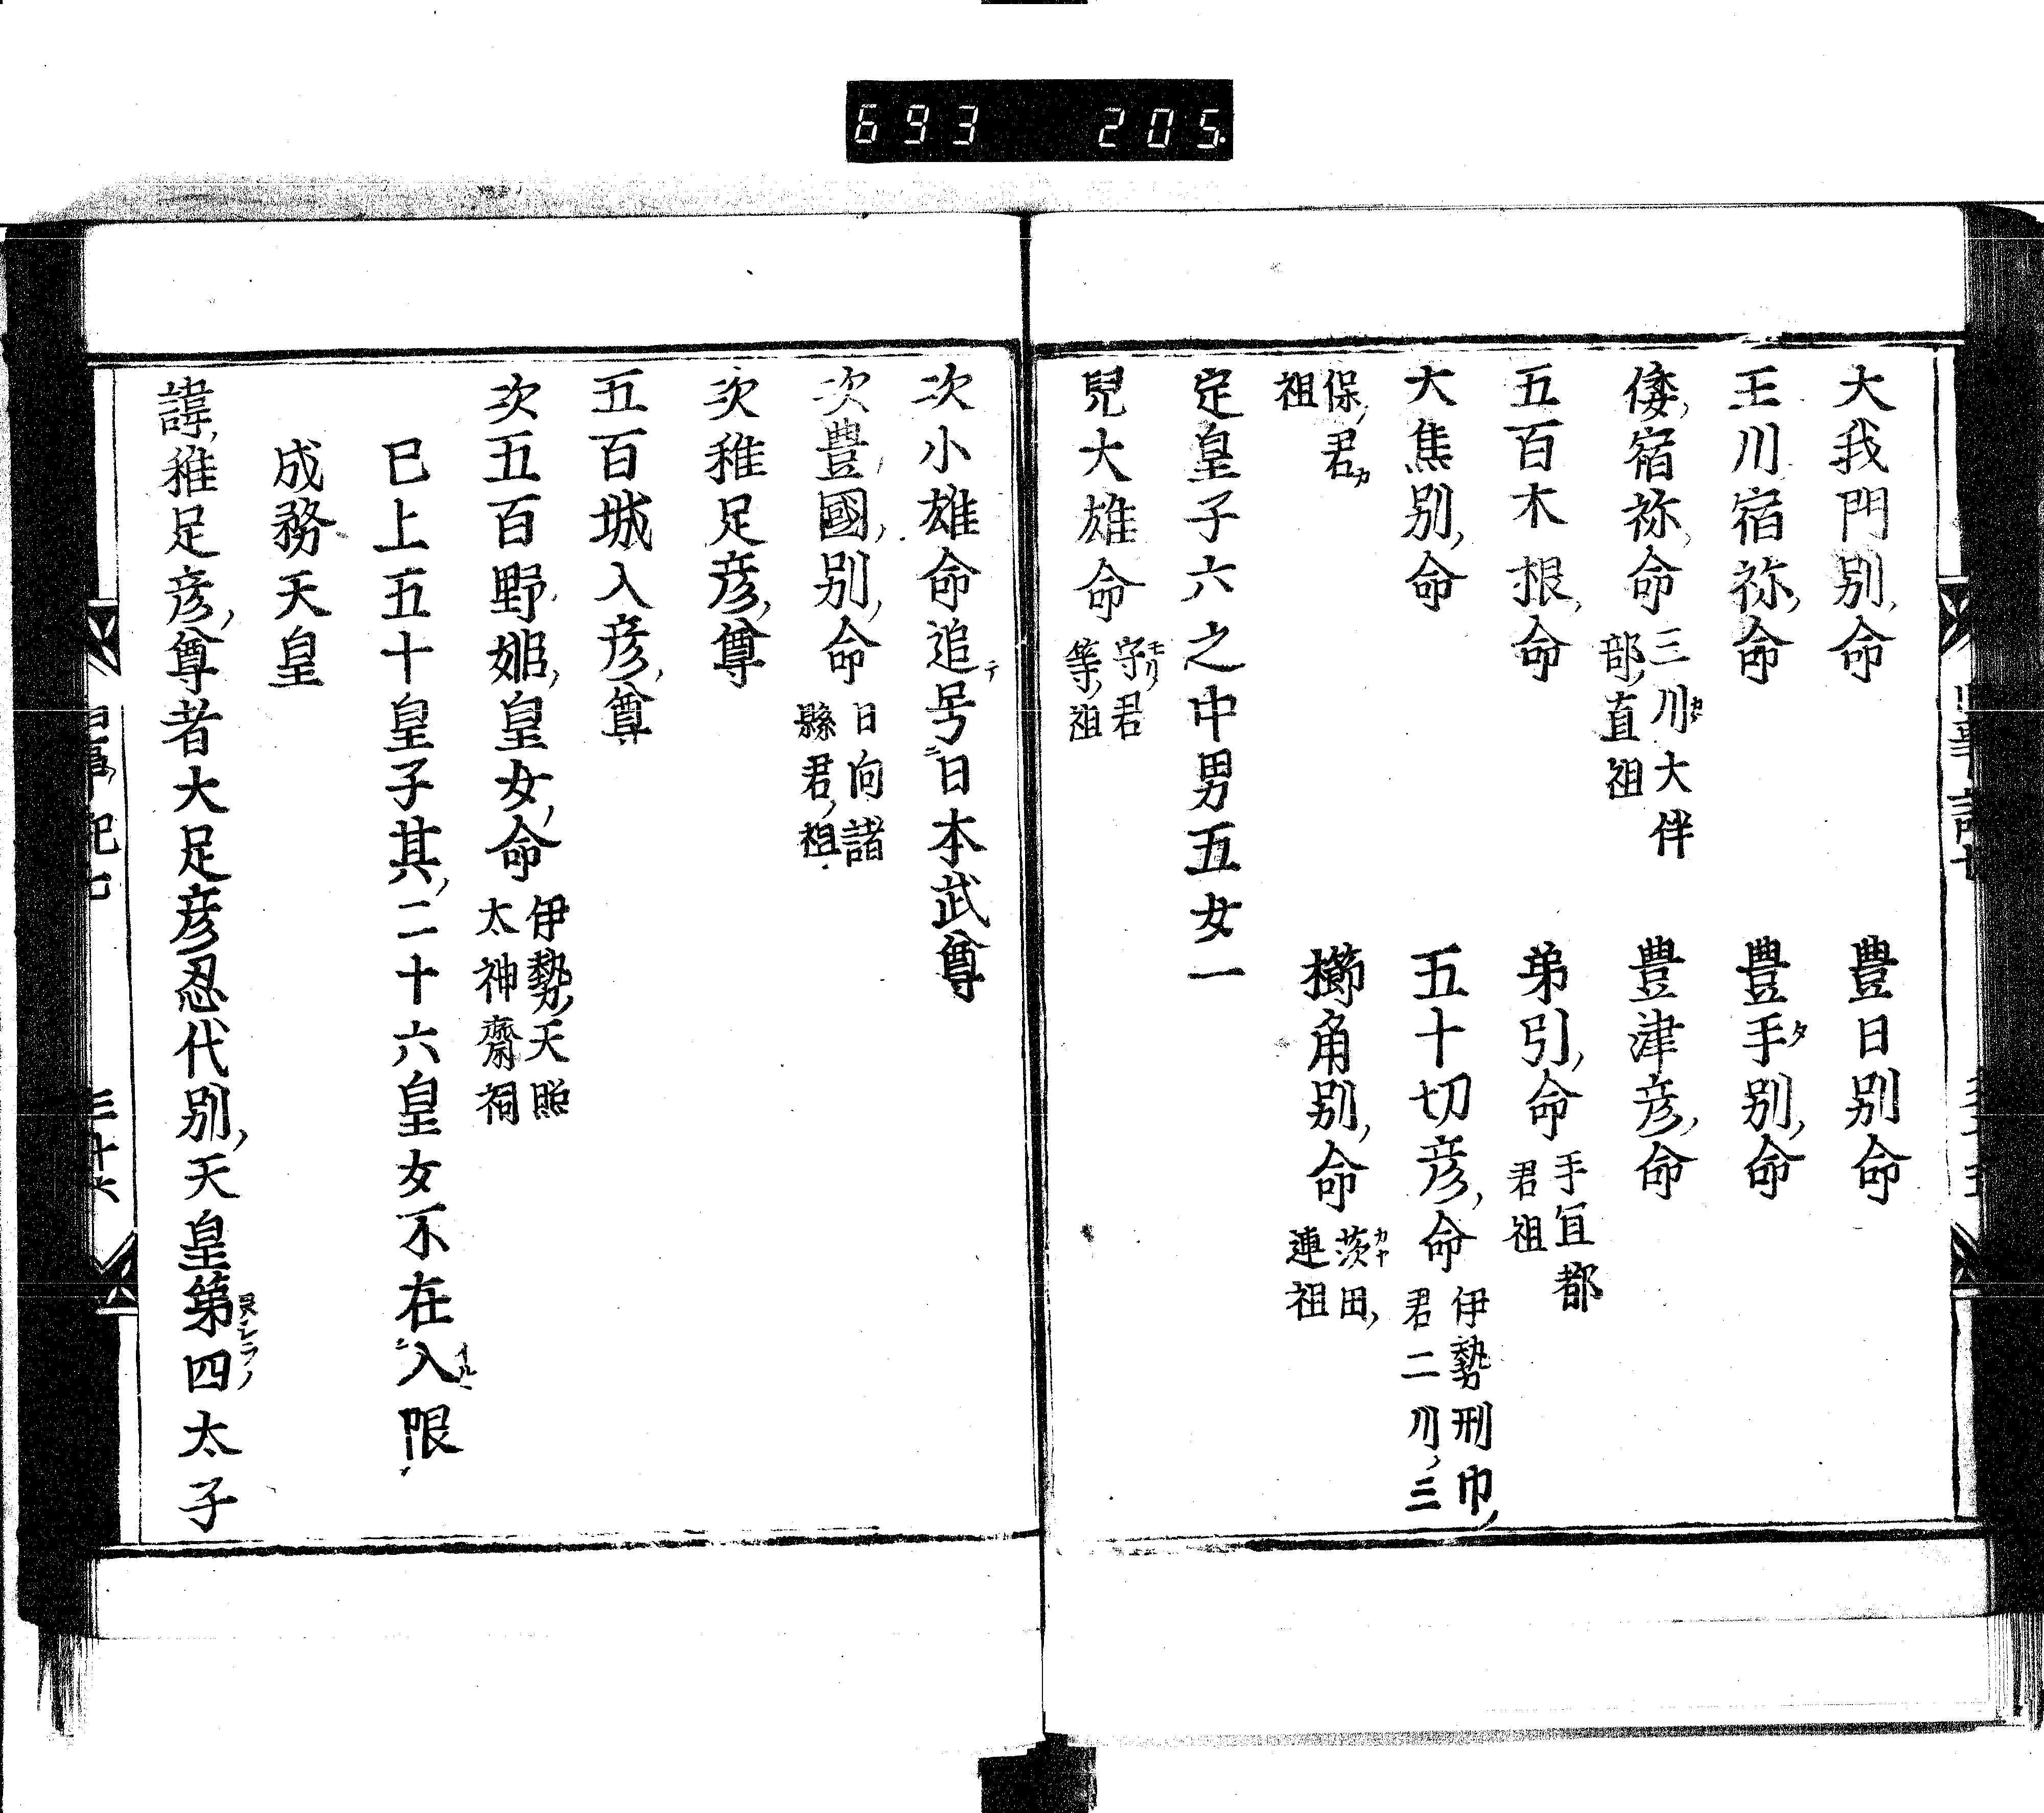 693 205
大我門別命 豊日別命
王川宿祢命 豊手タ別命
倭宿祢命 三川大伴部直祖 豊津彦命
五百木根命 弟引命 手冝都君祖
大焦別命 五十切彦命 伊勢刑巾君二川三
保君祖 櫛角別命 茨カヤ田連祖
定皇子六之中男五女一
兒大雄命 守モリ君等祖
次小雄命追テ号ニ日本武尊
次豊國別命 日向諸縣君祖
次稚足彦尊
五百城入彦尊
次五百野姫皇女命 伊勢天照太神齋祠
已上五十皇子其二十六皇女不在ニ入限
成務天皇
諱稚足彦尊者大足彦忍代別天皇第四太子
三十六